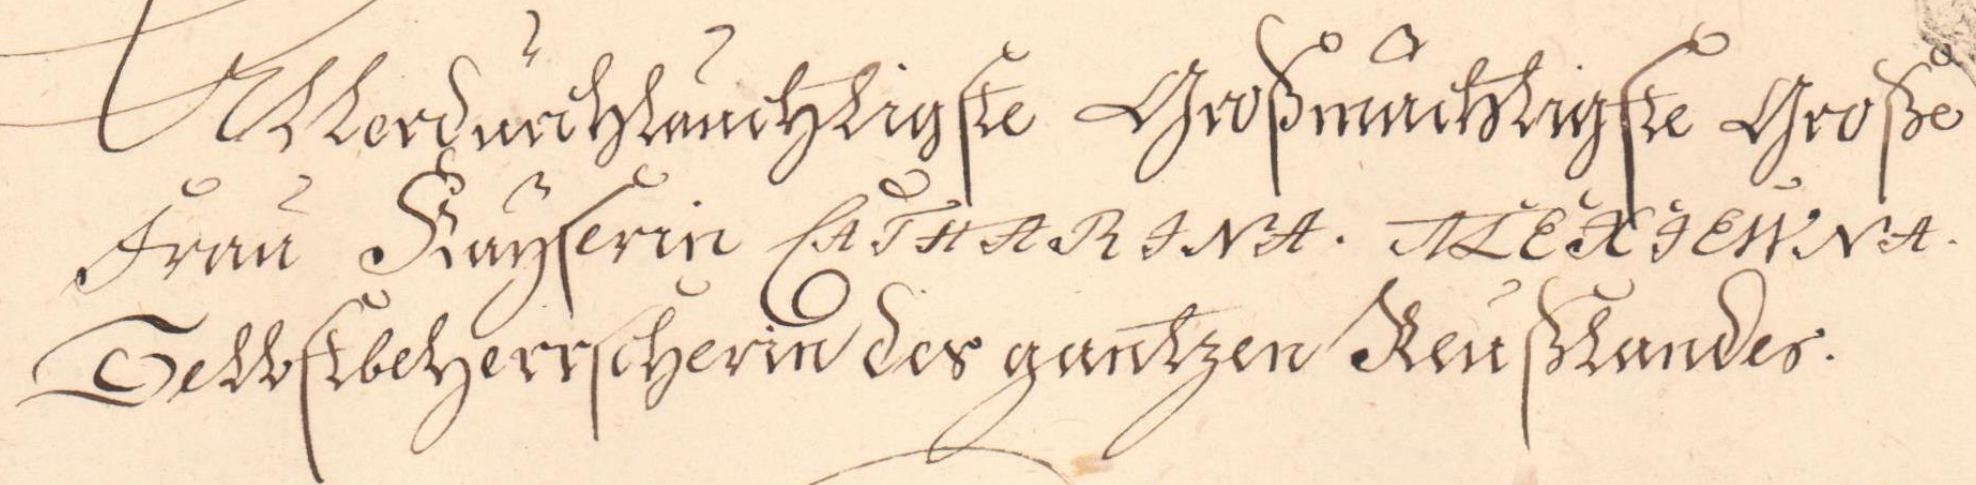 Allerdurchlauchtigste Großmächtigste Große
Frau Kayserin CATHARINA. ALEXIEWNA.
Selbstbeherrscherin des gantzen Reußlandes.